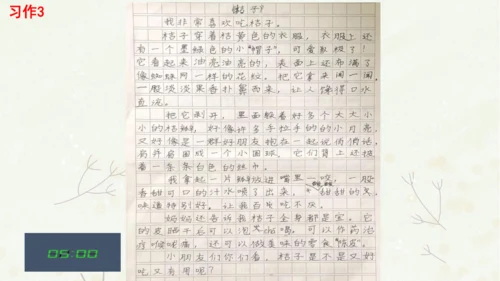 习作3
桔子
我非常喜欢吃桔子。
桔子穿着桔黄色的衣服，衣服上还
有一个墨绿色的小“帽子”，可爱极了！
它看起来油亮油亮的，表面上还布满了
像蜘蛛网一样的花纹。把它拿来闻一闻，
一股淡淡果香扑鼻而来，让人馋得口水
直流。
把它剥开，里面躲着好多个大大小
小的桔瓣，好像许多手拉手的的小月亮，
又好像是一群好朋友抱在一起说悄悄话，
肩并肩围成一个小圆球，它们背上还披
着一条条白色的丝巾。
我拿起一片放进嘴里一咬，一股
香甜可口的汁水喷了出来，甜甜的
味道特别好。让我百吃不厌。
妈妈还告诉我桔子全身都是宝。它
的皮晒干后可以泡，可以作药治
疗咽喉痛，还可以做美味的零食“陈皮”。
小朋友们你们看，桔子是不是又好
吃又有用呢？
05:00